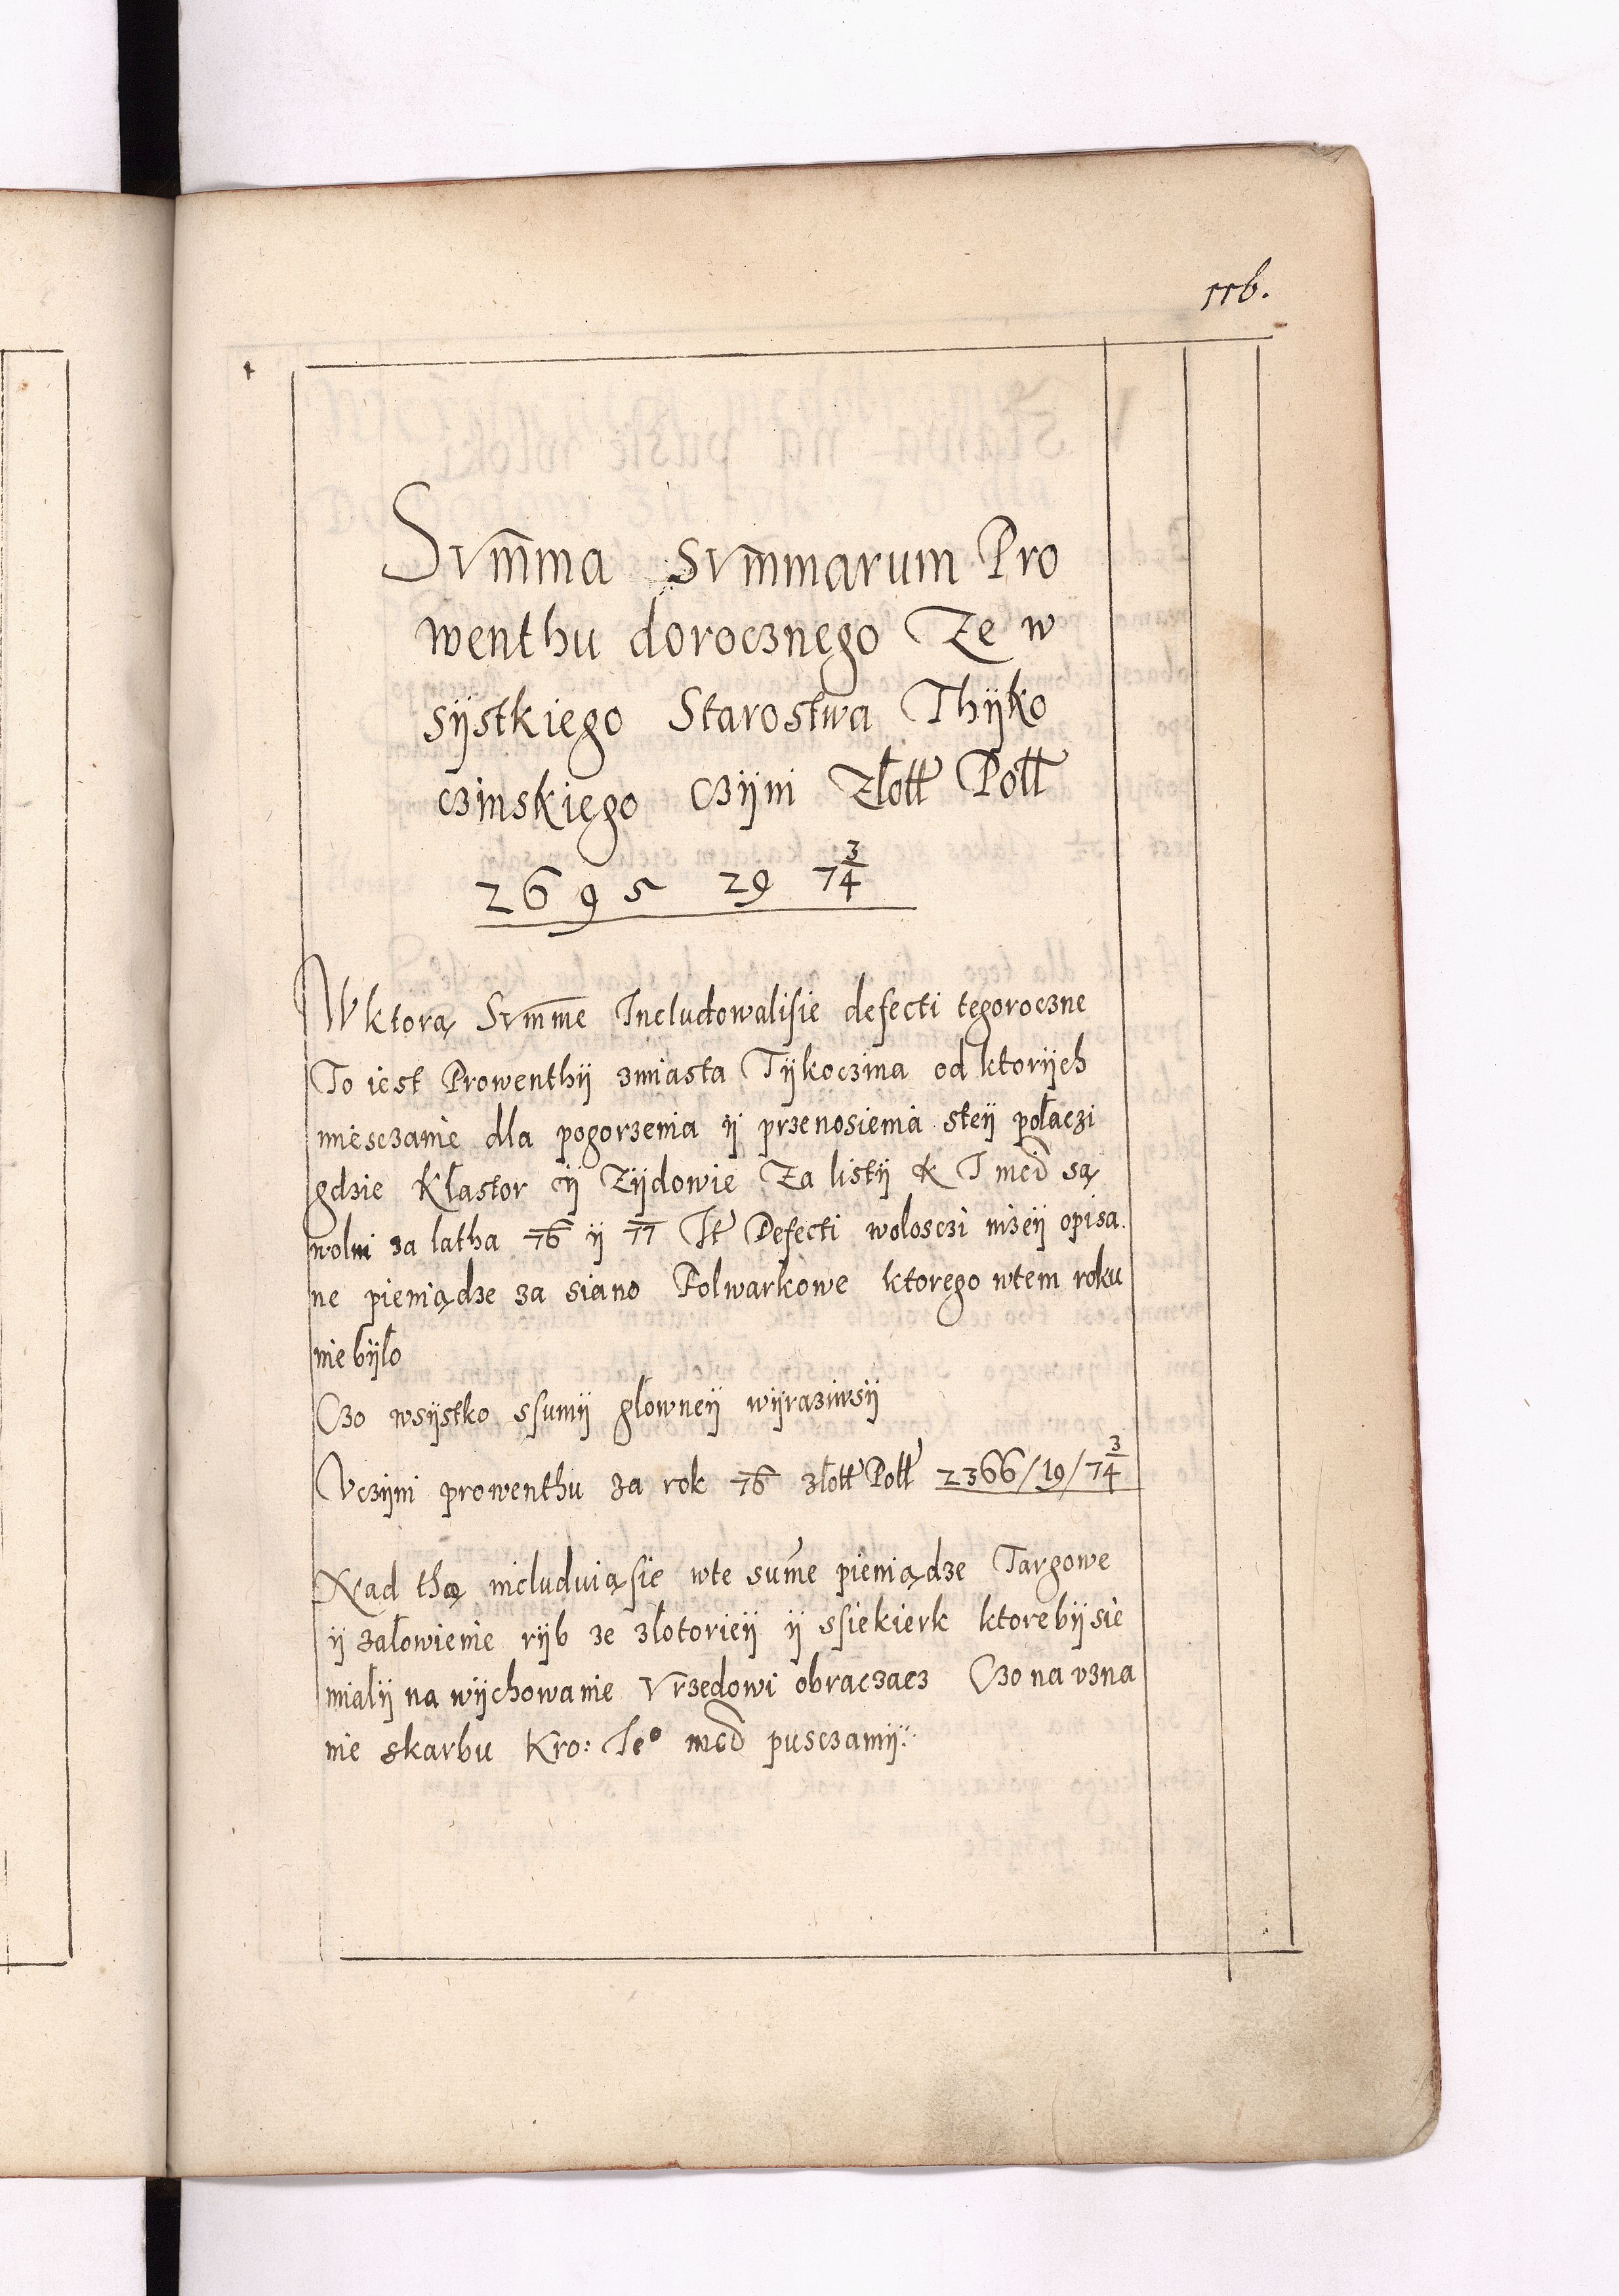 116.
Sum̅ma Sum̅marum Pro
wenthu dorocznego Ze w
sijstkiego Starostwa Thijko
czinskiego czijni Złott Poll
2695 29 7 3/4
W ktorą Sum̅me Includowalisie defecti tegoroczne
To iest Prowenthij zmiasta Tijkoczina od ktorijch
miesczanie dla pogorzenia ij przenosienia steij połaczi
gdzie Klastor ij Zijdowie Za listij K J mci są
wolni za latha 76 ij 77 It Defecti wolosczi nizeij opisa
ne pieniądze za siano Folwarkowe ktorego wtem roku
niebijło
Czo wsijstko ssumij głowneij wijraziwsij
Vczijni prowenthu za rok 76 złott Poll 2366/19/7 3/4
Nad thą includuiąsie wte sum̅e pieniądze Targowe
ij załowienie rijb ze złotorieij ij ssiekierk ktorebijsie
mialij na wijchowanie Vrzedowi obraczacz Czo na vzna
nie skarbu Kro: Jeº mci pusczamij